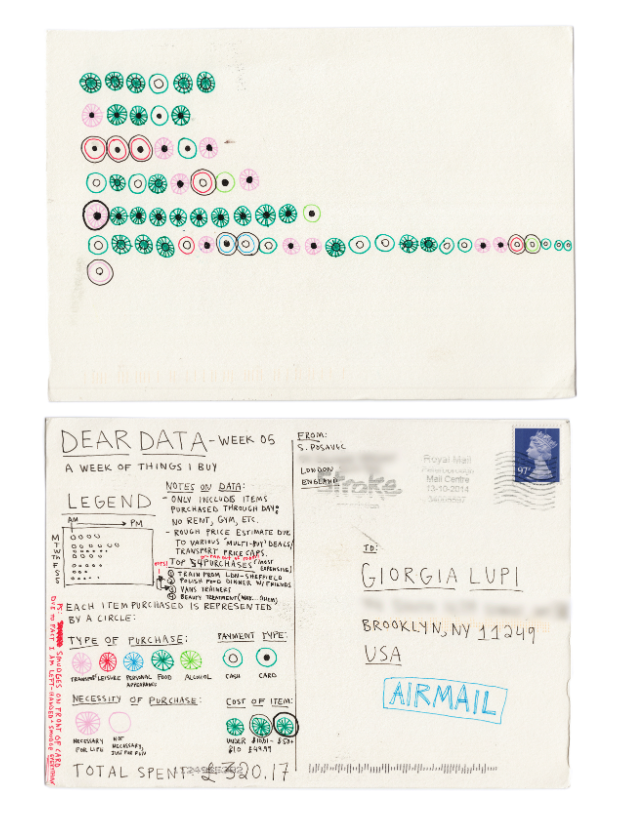 DEAR DATA - WEEK 05
A WEEK OF THINGS I BUY
LEGEND
AM
PM
M
T
W
Th
F
S
S
NOTES ON DATA:
- ONLY INCLUDE ITEMS
PURCHASED THROUGH DAY:
NO RENT, GYM, ETC.
- ROUGH PRICE ESTIMATE DUE
TO VARIOUS 'MULTI-BUY' DEALS/
TRANSPORT PRICE CAPS.
TOP PURCHASES (MOST
EXPENSIVE)
① TRAIN FROM LDN-SHEFFIELD
② POLISH FOOD DINNER W/FRIENDS
③ VANS TRAINERS
④ BEAUTY TREATMENT
EACH ITEM PURCHASED IS REPRESENTED
BY A CIRCLE:
TYPE OF PURCHASE:
TRANSPORT
LEISURE
PERSONAL
APPEARANCE
FOOD
ALCOHOL
PAYMENT TYPE:
CASH
CARD
NECESSITY OF PURCHASE:
NECESSARY
FOR LIFE
NOT
NECESSARY,
JUST FOR FUN
COST OF ITEM:
UNDER
£10
£10.01-
£49.99
£50+
TOTAL SPENT £320.17
PS: SMUDGES ON FRONT OF CARD
DUE TO FACT I AM LEFT-HANDED + SMUDGE EVERYTHING
FROM:
S. POSAVEC
LONDON
ENGLAND
Stroke
Royal Mail
Mail Centre
13-10-2014
97P
TO:
GIORGIA LUPI
BROOKLYN, NY 11249
USA
AIRMAIL